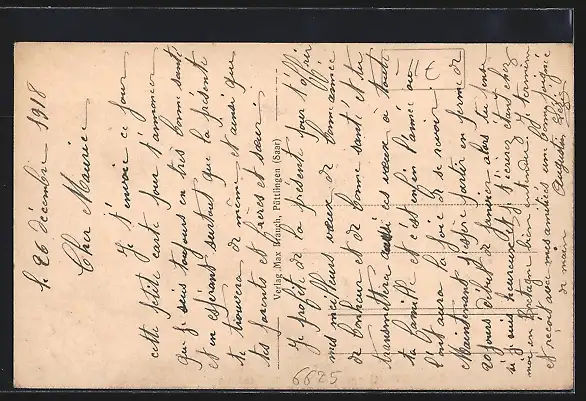 le 26 décembre 1918
Cher Maurice
Je t'envoie ce jour
cette petite carte pour t'annoncer
que je suis toujours en très bonne santé
et en espérant surtout que la présente
te trouvera de même et ainsi que
tes parents et frères et sœur.
Verlag Max Brauch, Püttlingen (Saar)
Je profite de la présente pour t'offrir
mes meilleurs vœux de bonne année
de bonheur et de bonne santé et tu
transmettra aussi ces vœux à toute
ta famille et c'est enfin l'année où
l'ont aura la joie de se revoir.
Maintenant j'espère partir en perme de
20 jours début de janvier alors tu pense
si je suis heureux et je t'écrirez étant chez
moi en Bretagne bien entendu. J'y termine
et reçoit avec mes amitiés une bonne poignée
de main
Augustin
6625